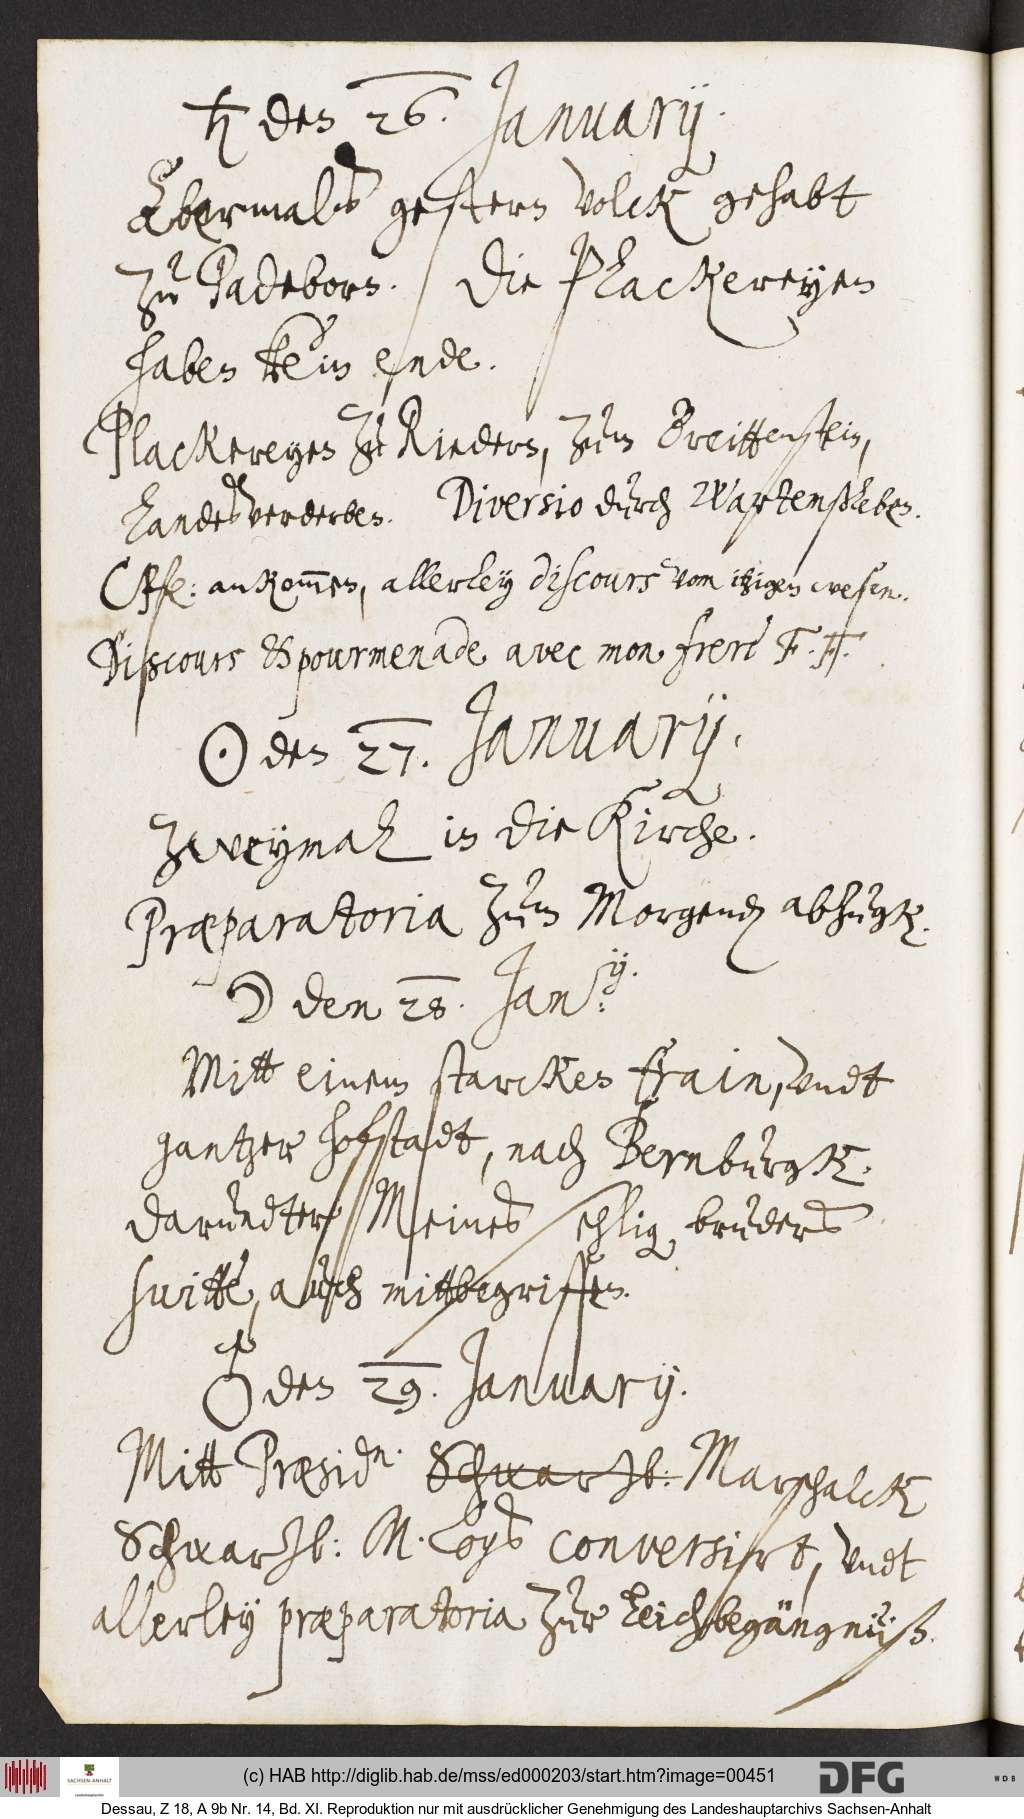 ♄ den 26. Januarÿ.
Abermalß gestern volck gehabt
zu Padeborn. Die Plackereyen
haben kein ende.
Plackereyen zu Riedern, zum Breittenstein,
Landesverderben. Diversio durch Wartenßleben.
CPfe: ankommen, allerley discours vom itzigen wesen.
Discours & pourmenade avec mon frere F. H.
☉ den 27. Januarÿ.
Zweymal in die Kirche.
Præparatoria zum Morgend abzugk.
☽ den 28. Jan:ÿ.
Mitt einem starcken train, vndt
gantzer hofstadt, nach Bernburgk.
darundter Meines sehlig bruders
suitte, auch mittbegriffen.
♂ den 29. Januarÿ.
Mitt Præsidn. Schwartzb: Marschalck
Schwartzb: M. Loys conversirt, vndt
allerley præparatoria zur Leichbegängnüß.
(c) HAB http://diglib.hab.de/mss/ed000203/start.htm?image=00451
SACHSEN-ANHALT
DFG
WDB
Dessau, Z 18, A 9b Nr. 14, Bd. XI. Reproduktion nur mit ausdrücklicher Genehmigung des Landeshauptarchivs Sachsen-Anhalt